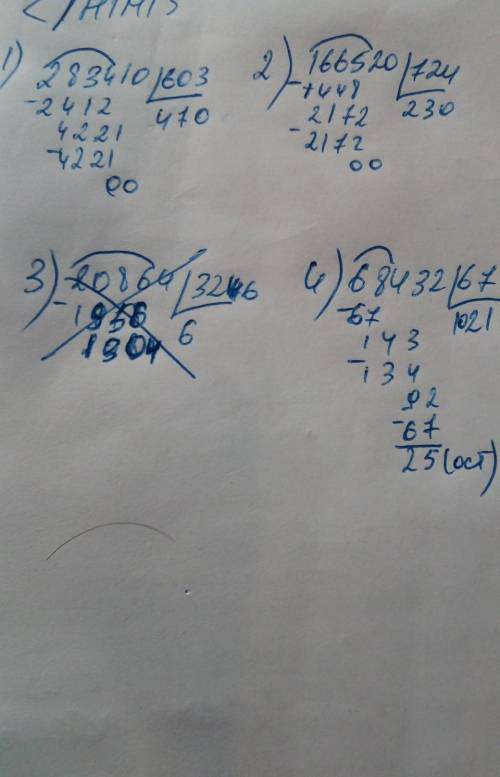 1) 283410 | 603
- 2412 | 470
4221
- 4221
00
2) 166520 | 724
- 1448 | 230
2172
- 2172
00
3) 20864 | 3246
- 6
4) 68432 | 67
- 67 | 1021
143
- 134
92
- 67
25 (ост)